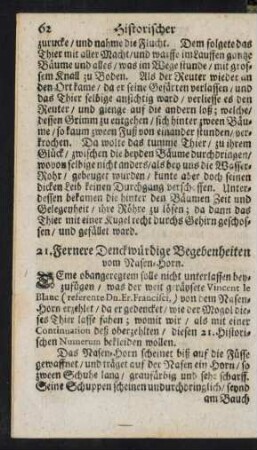 62 Historischer
zurucke/ und nahme die Flucht. Dem folgete das
Thier mit aller Macht/ und warffe im Lauffen gantze
Bäume und alles/ was im Wege stunde/ mit gros-
sem Knall zu Boden. Als der Reuter wieder an
den Ort kame/ da er seine Gefärten verlassen/ und
das Thier selbige ansichtig ward/ verliesse es den
Reuter/ und gienge auf die andern loß; welche/
dessen Grimm zu entgehen/ sich hinter zween Bäu-
me/ so kaum zween Fuß von einander stunden/ ver-
krochen. Da wolte das tumme Thier/ zu ihrem
Glück/ zwischen die beyden Bäume durchdringen/
wovon selbige nicht anders/ als bey uns die Wasser-
Rohr/ gebeuget wurden/ kunte aber doch seinen
dicken Leib keinen Durchgang verschaffen. Unter-
dessen bekamen die hinter den Bäumen Zeit und
Gelegenheit/ ihre Röhre zu lösen; da dann das
Thier mit einer Kugel recht durchs Gehirn geschos-
sen/ und gefället ward.
21. Fernere Denckwürdige Begebenheiten
vom Nasen-Horn.
DEme obangeregtem solle nicht unterlassen bey-
zufügen/ was der weit gräysete Vincent le
Blanc (referente Dn. Er. Francisci,) von dem Nasen-
Horn erzehlet/ da er gedencket/ wie der Mogol die-
ses Thier lasse fahen; womit wir/ als mit einer
Continuation deß oberzehlten/ diesen 21. Histori-
schen Numerum bekleiden wollen.
Das Nasen-Horn scheinet biß auf die Füsse
gewaffnet/ und träget auf der Nasen ein Horn/ so
zween Schuhe lang/ grausürbig und sehr scharff.
Seine Schuppen scheinen undurchdringlich/ seynd
am Bauch